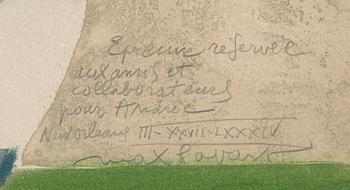 Epreuve réservée
aux amis et
collaborateurs
pour Andrée
New Orleans III-XXVII-LXXXIV
Max